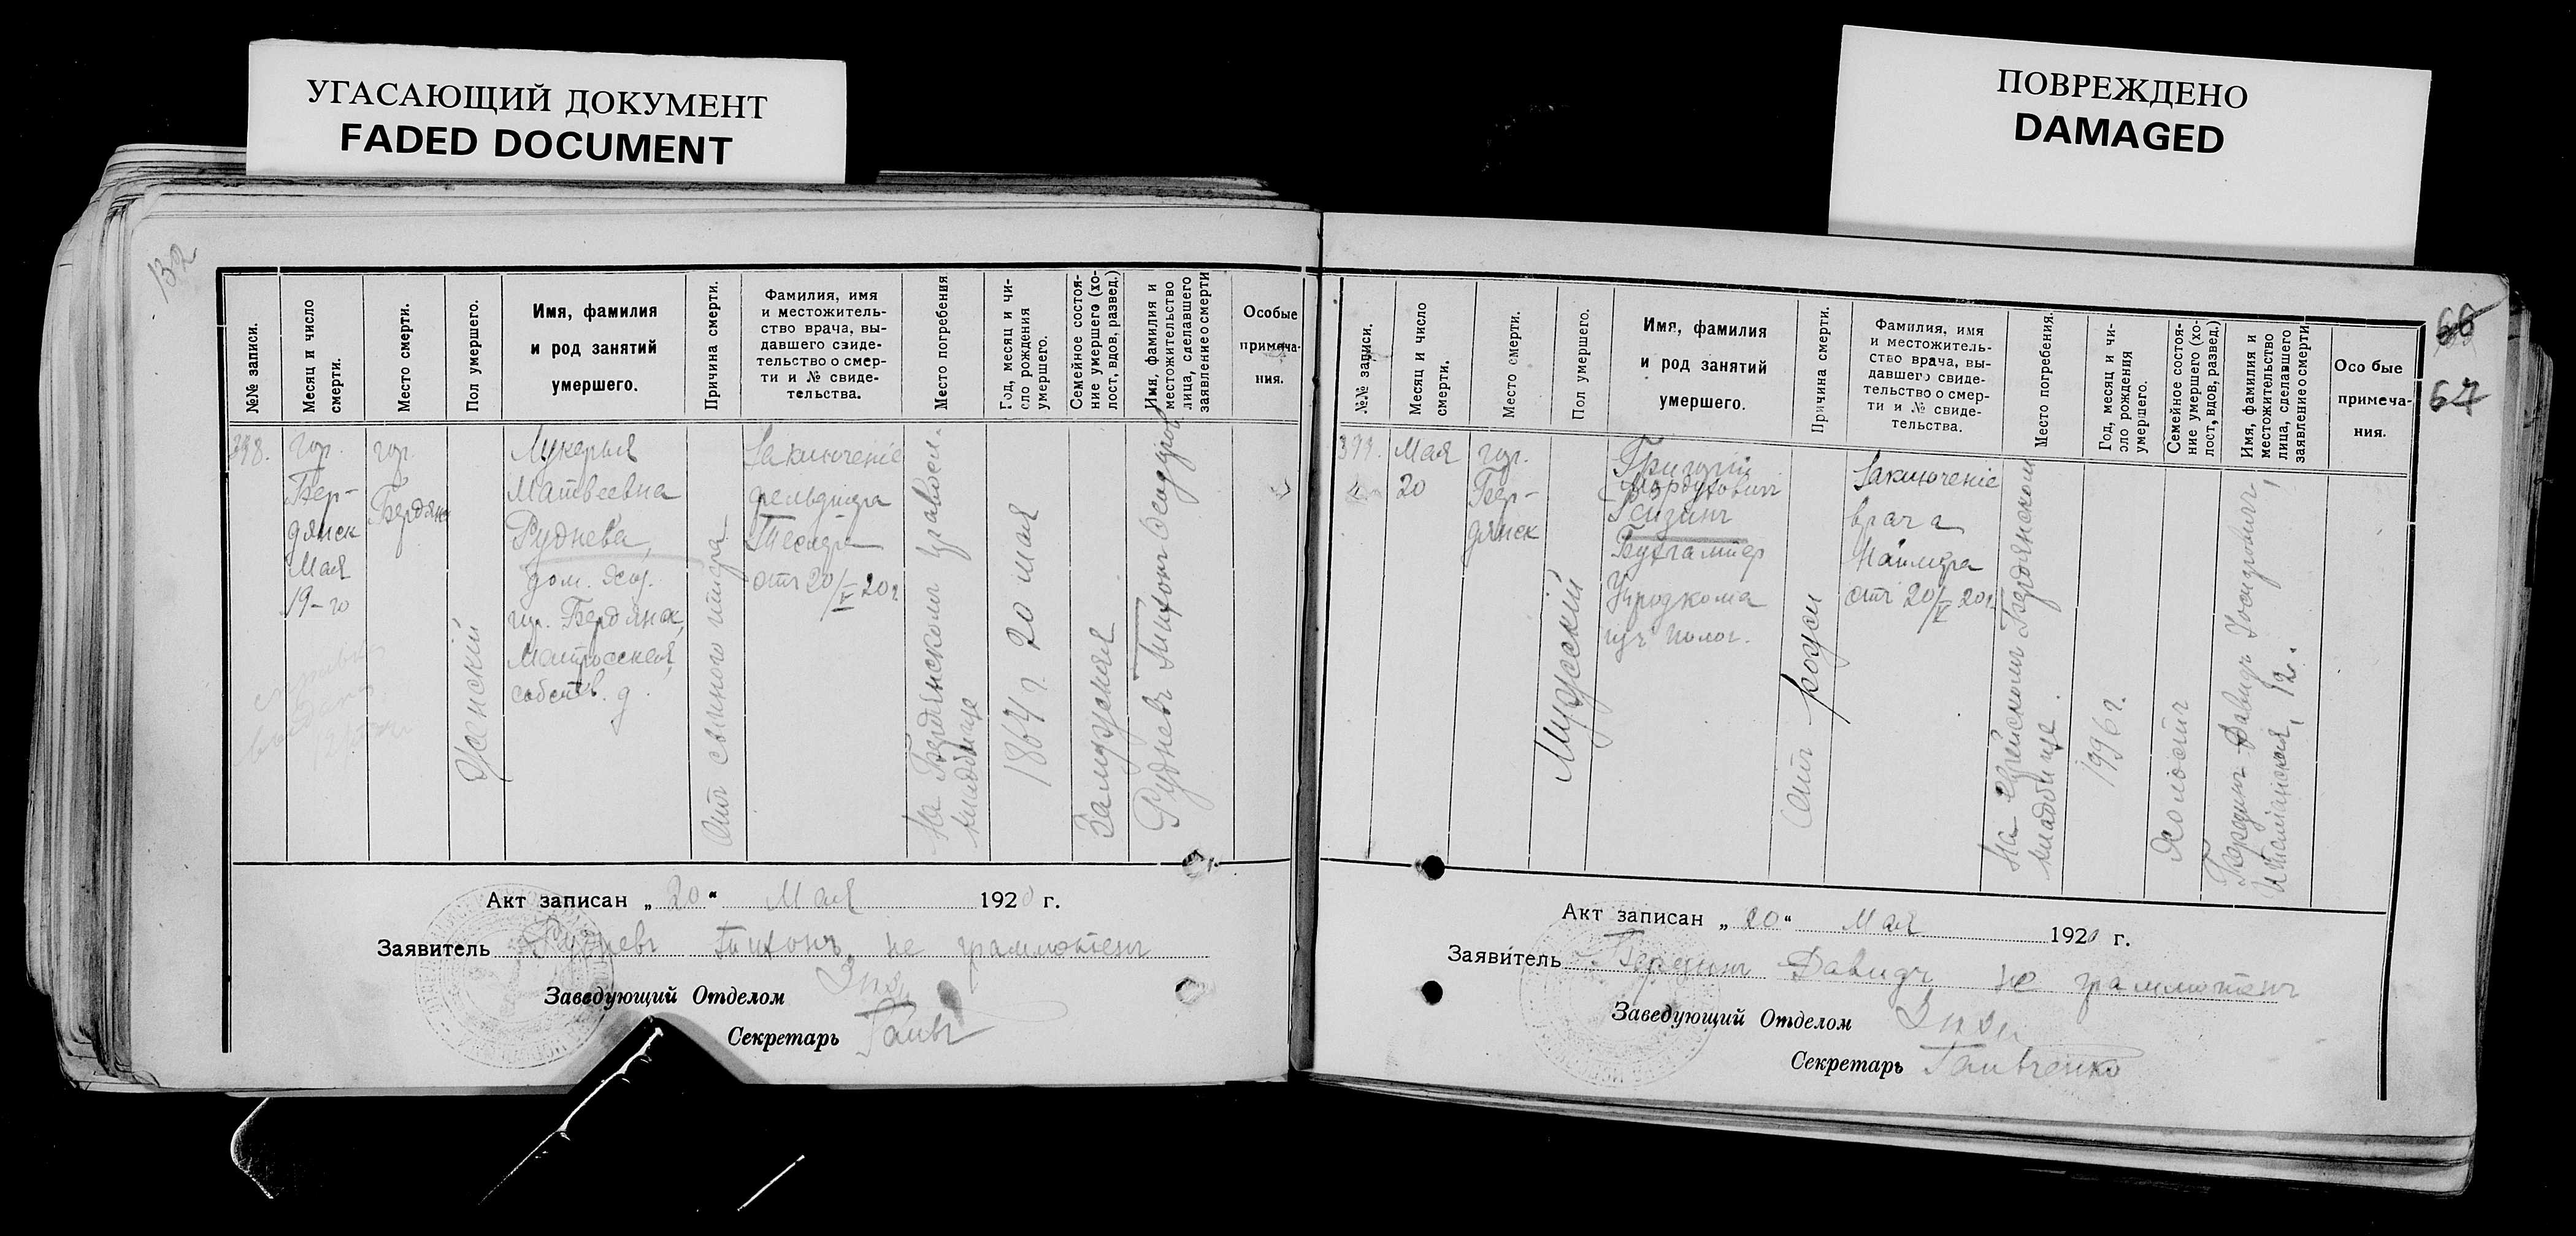 УГАСАЮЩИЙ ДОКУМЕНТ
FADED DOCUMENT
ПОВРЕЖДЕНО
DAMAGED
132
№№ записи.
Месяц и число
смерти.
Место смерти.
Пол умершего.
Имя, фамилия
и род занятий
умершего.
Причина смерти.
Фамилия, имя
и местожитель-
ство врача, вы-
давшего свиде-
тельство о смер-
ти и № свиде-
тельства.
Место погребения
Год, месяц и чи-
сло рождения
умершего.
Семейное состоя-
ние умершего (хо-
лост, вдов, развед.)
Имя, фамилия и
местожительство
лица, сделавшего
заявление о смерти
Особые
примеча-
ния.
398.
гор.
Бер-
дянск
Мая
19-го
гор.
Бердянск
Женский
Лукерья
Матвеевна
Руднева,
дом. хоз.
гор. Бердянск,
Матросская,
собств. д.
От сыпного тифа
Заключенiе
фельдшера
от 20/V 20 г
На Бердянском православн.
кладбище
1864 г. 20 мая
Замужняя
Руднев Тихон
Акт записан „20“ Мая 1920 г.
Заявитель Рудневъ Тихонъ не грамотенъ
Заведующий Отделом
Секретарь
66
67
№№ записи.
Месяц и число
смерти.
Место смерти.
Пол умершего.
Имя, фамилия
и род занятий
умершего.
Причина смерти.
Фамилия, имя
и местожитель-
ство врача, вы-
давшего свиде-
тельство о смер-
ти и № свиде-
тельства.
Место погребения.
Год, месяц и чи-
сло рождения
умершего.
Семейное состоя-
ние умершего (хо-
лост, вдов, развед.)
Имя, фамилия и
местожительство
лица, сделавшего
заявление о смерти
Особые
примеча-
ния.
399.
Мая
20
гор.
Бер-
дянск
Мужский
Григорiй
Мордухович
Бухгалтер
От рожи
Заключенiе
врача
от 20/V 20 г
На еврейском Бердянском
кладбище.
1996 г.
Холост
Давид
12.
Акт записан „20“ Мая 1920 г.
Заявитель Давидъ не грамотенъ
Заведующий Отделом
Секретарь